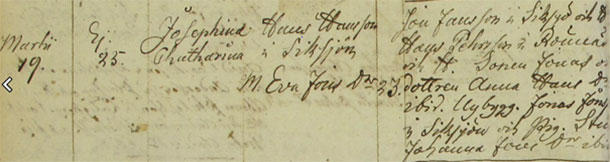 Martii 19.
Ej. 25.
Josephina Catharina
Hans Hansson i Siksjön
M. Eva Jons Dr. 23.
Jon Jansson i Siksjö och
Hans Pehrsson i
och H. Sonen Jonas
dottren Anna Hans D
ibid. Nybygg. Jonas Jons
i Siksjön och Pig.
Johanna Jons Dr ibi